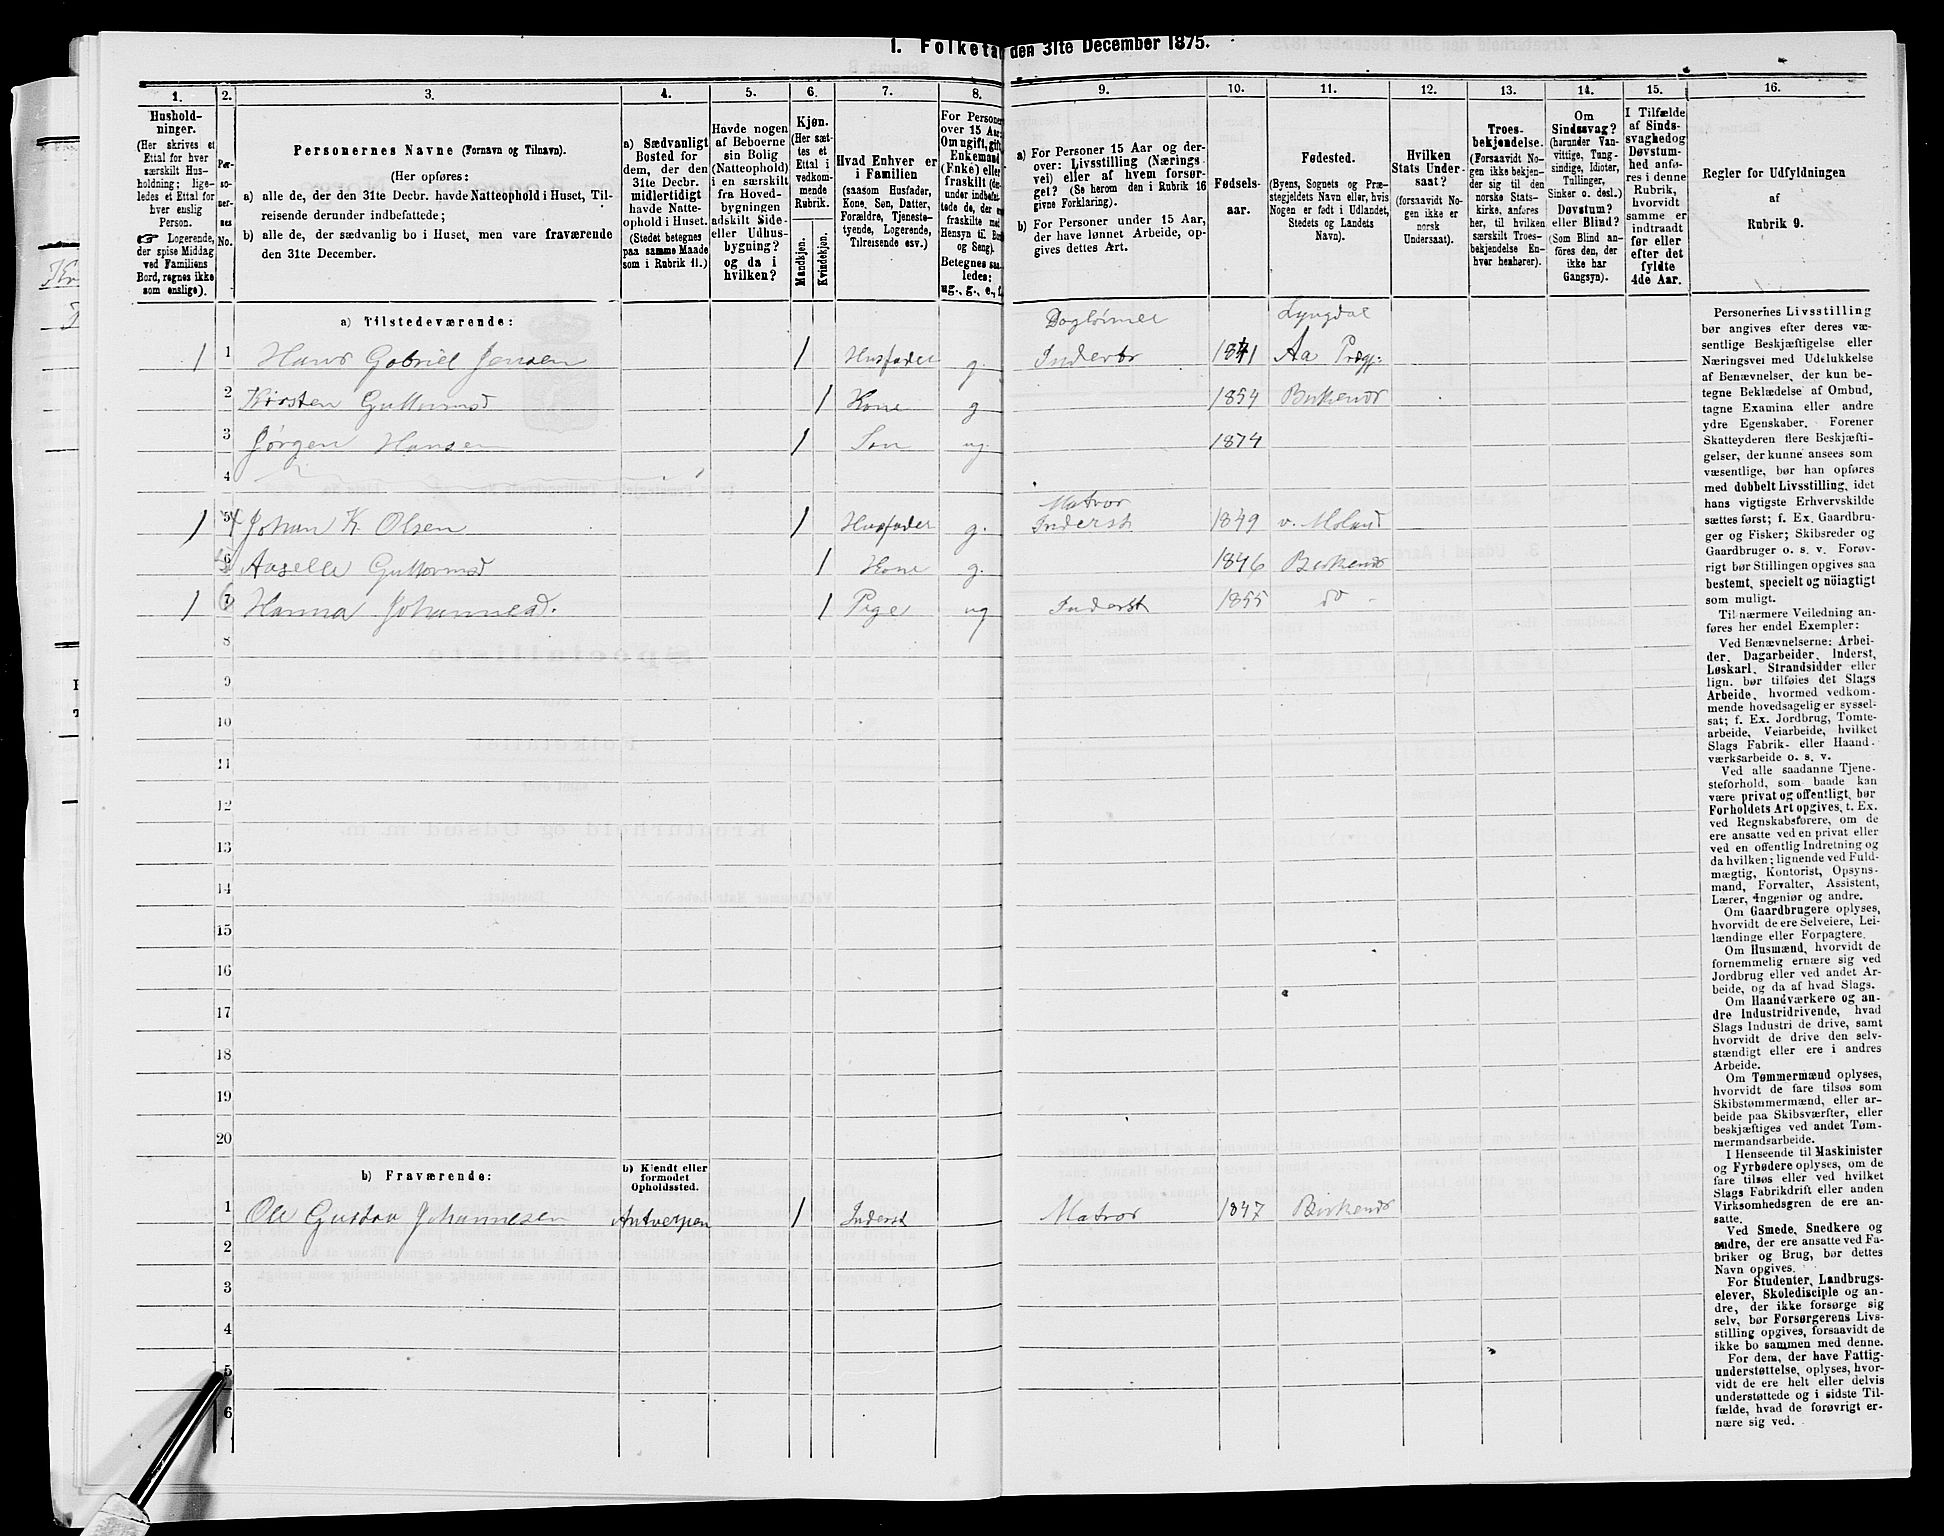 1. Folketa den 31te December 1875.
1. 2. 3. 4. 5. 6. 7. 8. 9. 10. 11. 12. 13. 14. 15. 16.
Hushold-
ninger.
(Her skrives et
Ettal for hver
særskilt Hus-
holdning; lige-
ledes et Ettal for
hver enslig
Person.
☞ Logerende,
der spise Middag
ved Familiens
Bord, regnes ikke
som enslige).
Per-
so-
ner-
nes
No.
Personernes Navne (Fornavn og Tilnavn).
(Her opføres:
a) alle de, der den 31te Decbr. havde Natteophold i Huset, Til-
reisende derunder indbefattede;
b) alle de, der sædvanlig bo i Huset, men vare fraværende
den 31te December.
a) Sædvanligt
Bosted for
dem, der den
31te Decbr.
midlertidigt
havde Natte-
ophold i Huset.
(Stedet betegnes
paa samme Maade
som i Rubrik 11.)
Havde nogen
af Beboerne
sin Bolig
(Natteophold)
i en særskilt
fra Hoved-
bygningen
adskilt Side-
eller Udhus-
bygning?
og da i
hvilken?
Kjøn.
(Her sæt-
tes et
Ettal i
vedkom-
mende
Rubrik.
Mandkjøn.
Kvindekjøn.
Hvad Enhver er
i Familien
(saasom Husfader,
Kone, Søn, Datter,
Forældre, Tjeneste-
tyende, Logerende,
Tilreisende osv.)
For Personer
over 15 Aar:
Om ugift, gift,
Enkemand
(Enke) eller
fraskilt (de-
runder indbefat-
tede de, der er
fraskilte med
Hensyn til Bord
og Seng).
Betegnes saa-
ledes:
ug., g., e., f.
a) For Personer 15 Aar og der-
over: Livsstilling (Nærings
vei) eller af hvem forsør-
get? (Se herom den i Rubrik 16
givne Forklaring).
b) For Personer under 15 Aar,
der have lønnet Arbeide, op-
gives dettes Art.
Fødsels-
aar.
Fødested.
(Byens, Sognets og Præ-
stegjeldets Navn eller, hvis
Nogen er født i Udlandet,
Stedets og Landets
Navn).
Hvilken
Stats Under-
saat?
(forsaavidt No-
gen ikke er
norsk
Undersaat).
Troes-
bekjendelse.
(Forsaavidt No-
gen ikke bekjen-
der sig til den
norske Stats-
kirke, anføres
her, til hvilken
særskilt Troes-
bekjendelse En-
hver henhører).
Om
Sindssvag?
(harunder Van-
vittige, Tung-
sindige, Idioter,
Tullinger,
Sinker o. desl.)
Døvstum?
eller Blind?
(Som Blind an-
føres den, der
ikke har
Gangsyn).
I Tilfælde
af Sinds-
svaghedog
Døvstum-
hed anfø-
res i denne
Rubrik,
hvorvidt
samme er
indtraadt
før eller
efter det
fyldte
4de Aar.
Regler for Udfyldningen
af
Rubrik 9.
a) Tilstedeværende:
Lyngdal
1 1 Hans Gabriel Jensen 1 Husfader g. 1841 Aa Prgj:
2 Kirsten Guttormsd 1 Kone g 1854 Birkenes
3 Jørgen Hansen 1 Søn ug. 1874
4
Matros
1 5 4 Johan K. Olsen 1 Husfader g. Inderst 1849 v. Moland
6 5 Aaselle Guttormsd 1 Kone g. 1846 Birkenes
1 7 6 Hanna Johannesd. 1 Pige ug Inderst 1855 do
8
9
10
11
12
13
14
15
16
17
18
19
20
b) Fraværende:
b) Kjendt eller
formodet
Opholdssted.
1 Ole Gustav Johannesen Antverpen 1 Inderst Matros 1847 Birkenes
2
3
4
5
6
Personernes Livsstilling
bør angives efter deres væ-
sentlige Beskjæftigelse eller
Næringsvei med Udelukkelse
af Benævnelser, der kun be-
tegne Beklædelse af Ombud,
tagne Examina eller andre
ydre Egenskaber. Forener
Skatteyderen flere Beskjæfti-
gelser, der kunne ansees som
væsentlige, bør han opføres
med dobbelt Livsstilling, idet
hans vigtigste Erhvervskilde
sættes først; f. Ex. Gaardbru-
ger og Fisker; Skibsreder og
Gaardbruger o. s. v. Forøv-
rigt bør Stillingen opgives saa
bestemt, specielt og nøiagtigt
som muligt.
Til nærmere Veiledning an-
føres her endel Exempler:
Ved Benævnelserne: Arbei-
der, Dagarbeider, Inderst,
Løskarl, Strandsidder eller
lign. bør tilføies det Slags
Arbeide, hvormed vedkom-
mende hovedsagelig er syssel-
sat; f. Ex. Jordbrug, Tomte-
arbeide, Veiarbeide, hvilket
Slags Fabrik- eller Haand-
værksarbeide o. s. v.
Ved alle saadanne Tjene-
steforhold, som baade kan
være privat og offentligt, bør
Forholdets Art opgives, t. Ex.
ved Regnskabsførere, om de
ere ansatte ved en privat eller
ved en offentlig Indretning og
da hvilken; lignende ved Fuld-
mægtig, Kontorist, Opsyns-
mand, Forvalter, Assistent,
Lærer, Ingeniør og andre.
Om Gaardbrugere oplyses,
hvorvidt de ere Selveiere, Lei-
lændinge eller Forpagtere.
Om Husmænd, hvorvidt de
fornemmelig ernære sig ved
Jordbrug eller ved andet Ar-
beide, og da af hvad Slags.
Om Haandværkere og an-
dre Industridrivende, hvad
Slags Industri de drive, samt
hvorvidt de drive den selv-
stændigt eller ere i andres
Arbeide.
Om Tømmermænd oplyses,
hvorvidt de fare tilsøs som
Skibstømmermænd, eller ar-
beide paa Skibsværfter, eller
beskjæftiges ved andet Tøm-
mermandsarbeide.
I Henseende til Maskinister
og Fyrbødere oplyses, om de
fare tilsøs eller ved hvilket
Slags Fabrikdrift eller anden
Virksomhedsgren de ere an-
satte.
Ved Smede, Snedkere og
andre, der ere ansatte ved Fa-
briker og Brug, bør dettes
Navn opgives.
For Studenter, Landbrugs-
elever, Skoledisciple og an-
dre, der ikke forsørge sig
selv, bør Forsørgerens Livs-
stilling opgives, forsaavidt de
ikke bo sammen med denne.
For dem, der have Fattig-
understøttelse, oplyses, hvor-
vidt de ere helt eller delvis
understøttede og i sidste Til-
fælde, hvad de forøvrigt er-
nære sig ved.